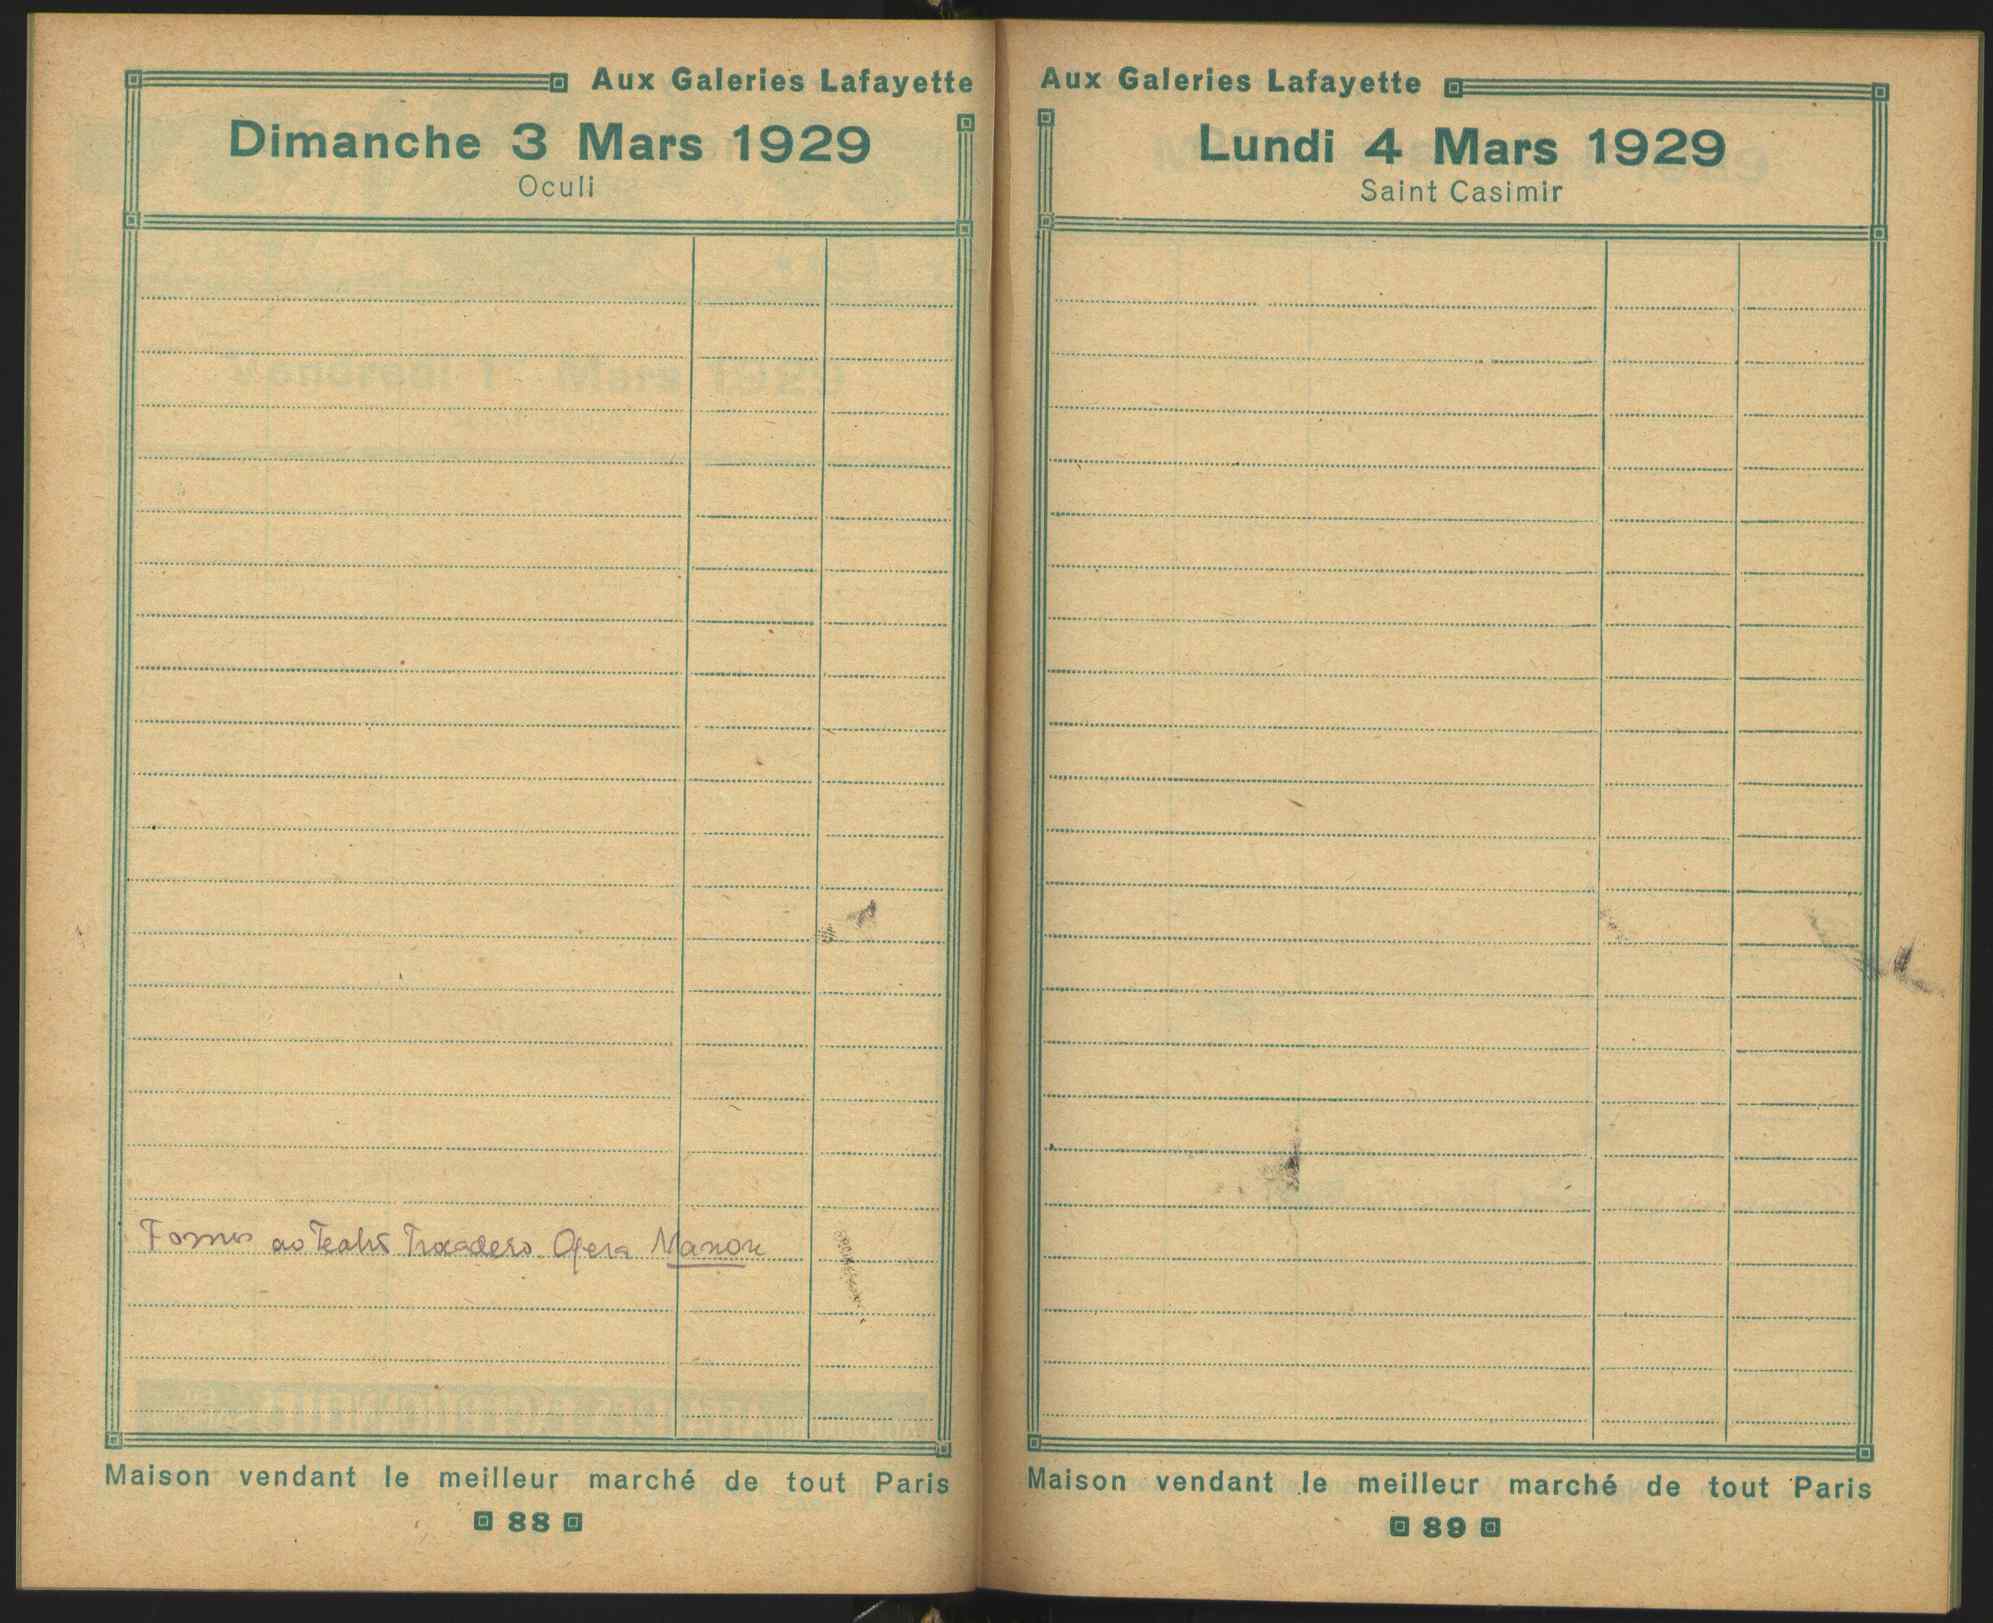 Aux Galeries Lafayette
Dimanche 3 Mars 1929
Oculi
Fomos ao Teatro Trocadero Opera Manon
Maison vendant le meilleur marché de tout Paris
88
Aux Galeries Lafayette
Lundi 4 Mars 1929
Saint Casimir
Maison vendant le meilleur marché de tout Paris
89